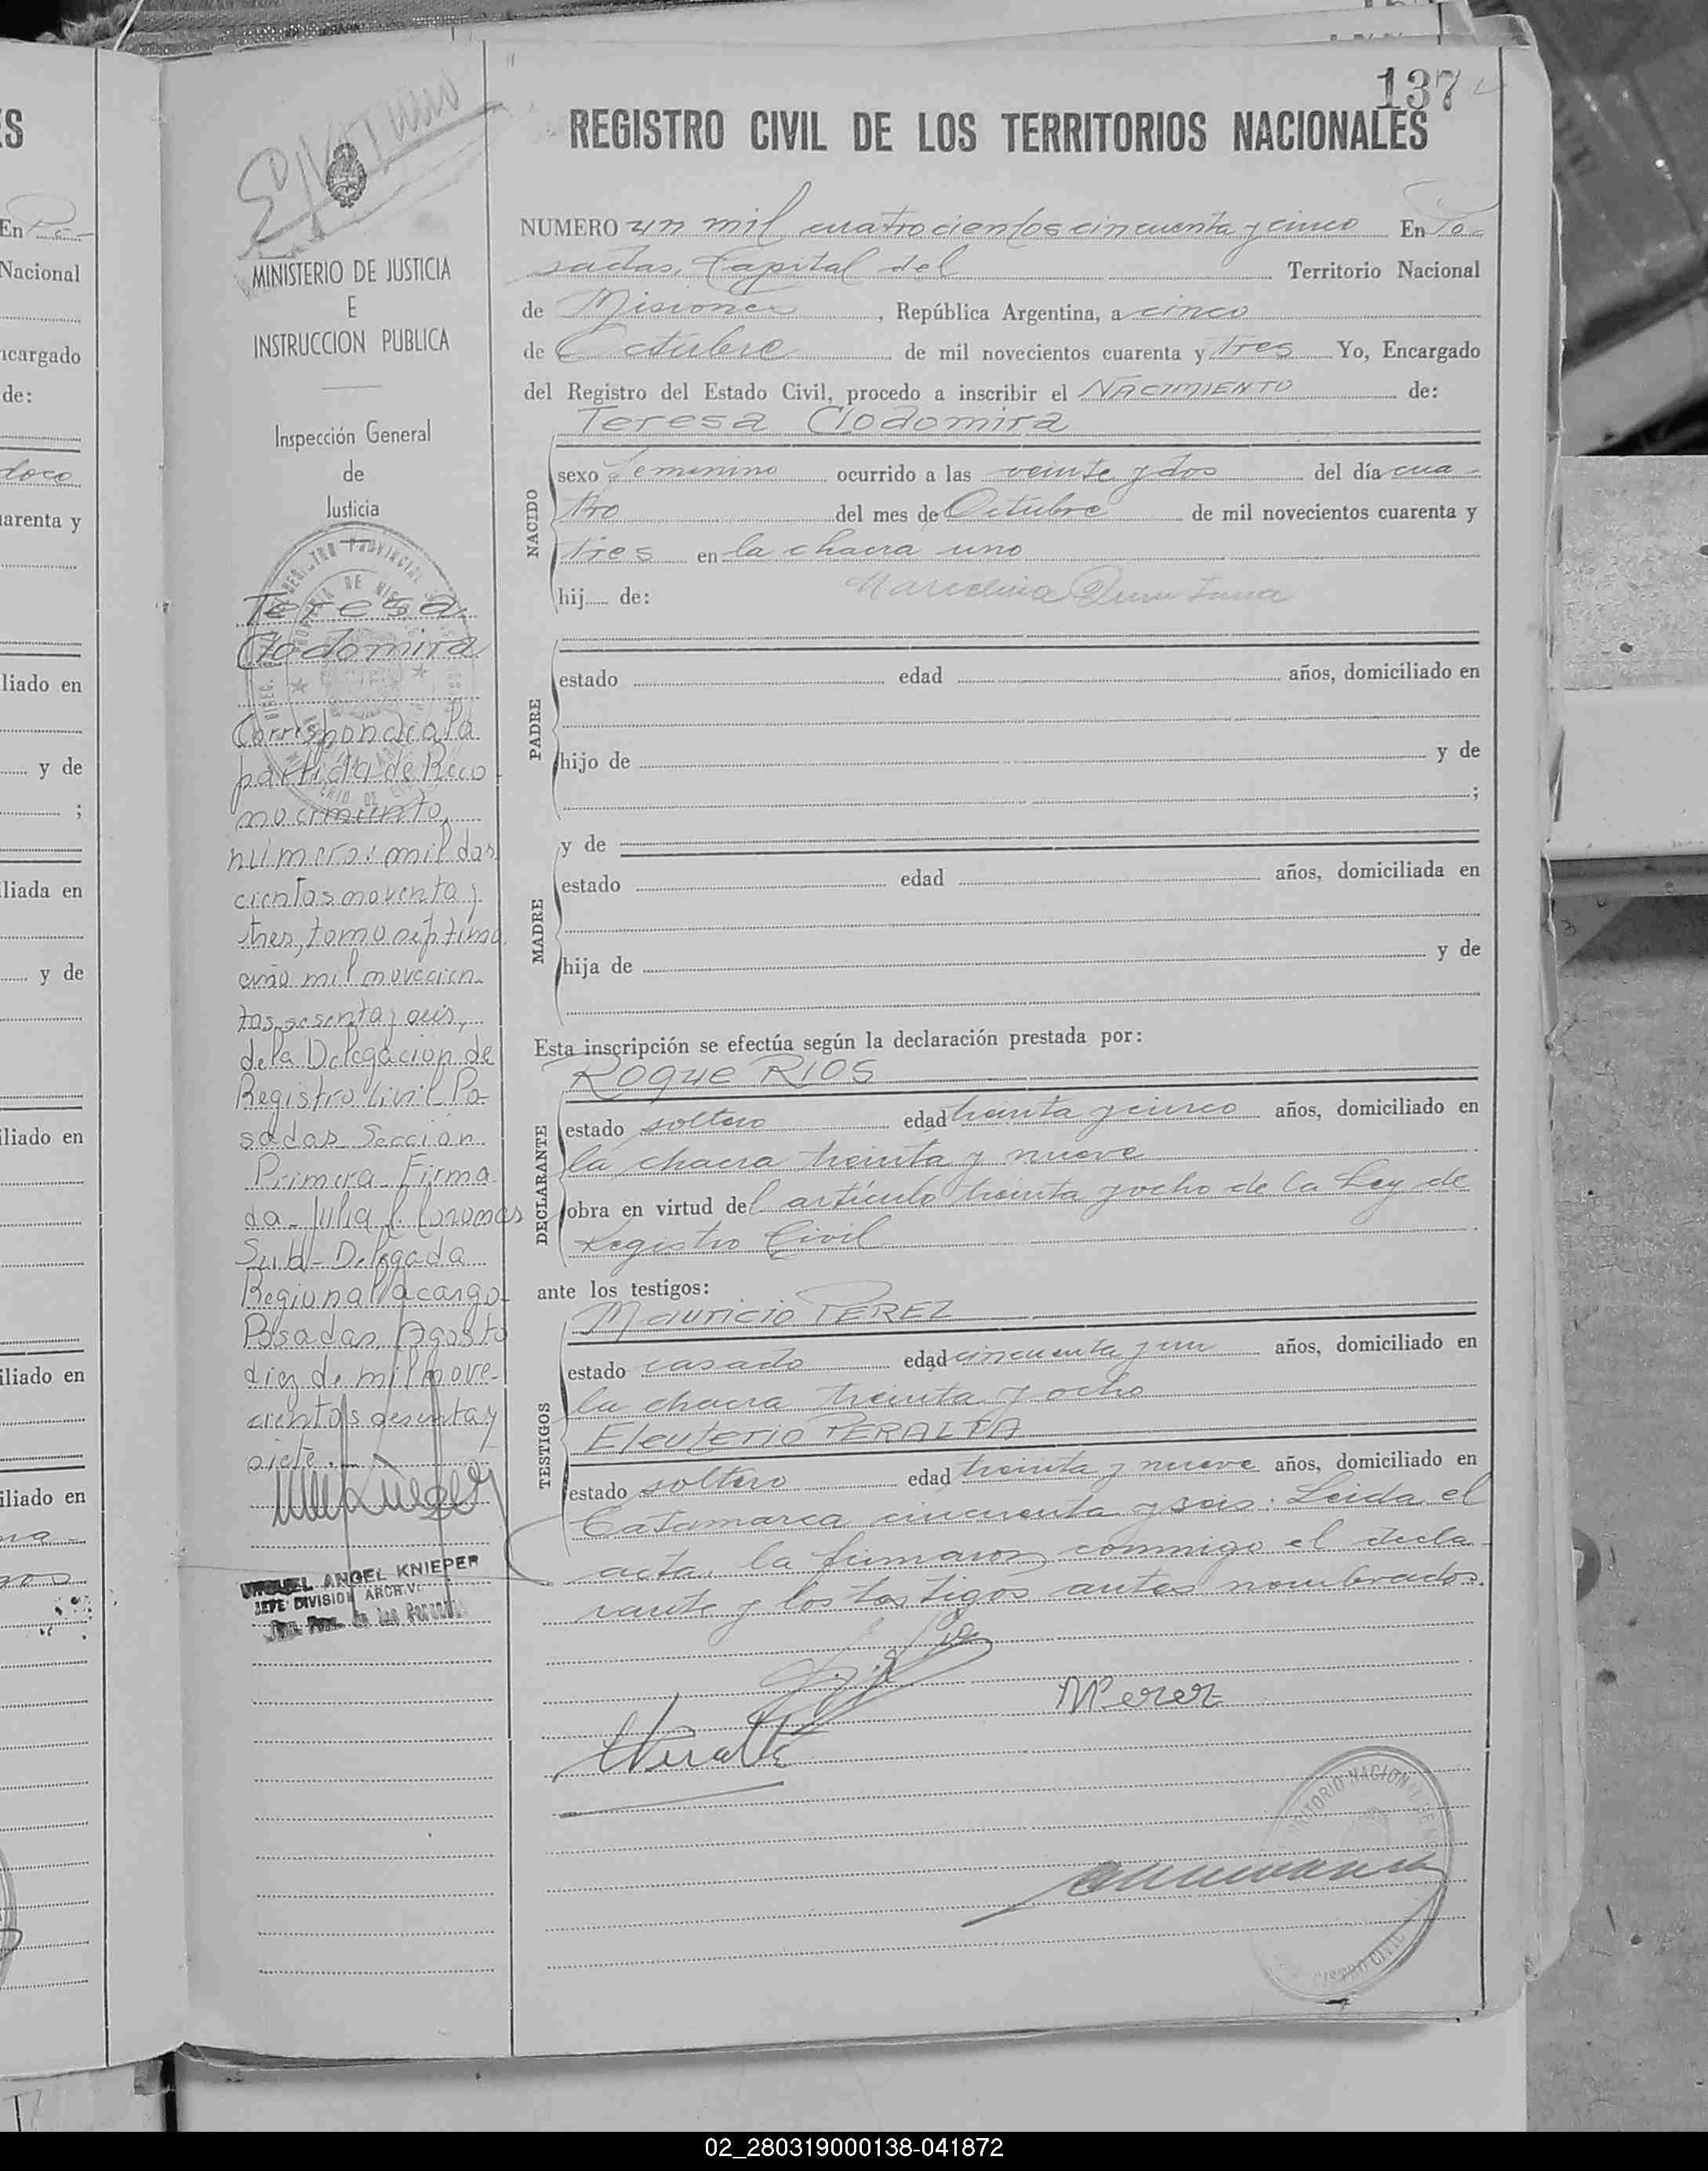 137
REGISTRO CIVIL DE LOS TERRITORIOS NACIONALES
NUMERO un mil cuatrocientos cincuenta y cinco En Po-
sadas, Capital del Territorio Nacional
de Misiones, República Argentina, a cinco
de Octubre de mil novecientos cuarenta y tres Yo, Encargado
del Registro del Estado Civil, procedo a inscribir el NACIMIENTO de:
Teresa Clodomira
NACIDO
sexo femenino ocurrido a las veinte y dos del día cua-
tro del mes de Octubre de mil novecientos cuarenta y
tres en la chacra uno
hij... de: Marcelina Quintana
PADRE
estado edad años, domiciliado en
hijo de y de
;
y de
MADRE
estado edad años, domiciliada en
hija de y de
Esta inscripción se efectúa según la declaración prestada por:
Roque RIOS
DECLARANTE
estado soltero edad treinta y cinco años, domiciliado en
la chacra treinta y nueve
obra en virtud del artículo treinta y ocho de la Ley de
Registro Civil
ante los testigos:
Mauricio PEREZ
TESTIGOS
estado casado edad cincuenta y un años, domiciliado en
la chacra treinta y ocho
Eleuterio PERALTA
estado soltero edad treinta y nueve años, domiciliado en
Catamarca cincuenta y seis. Leida el
acta, la firmaron conmigo el decla-
rante y los testigos antes nombrados.
MPerez
MINISTERIO DE JUSTICIA
E
INSTRUCCION PUBLICA
Inspección General
de
Justicia
Teresa
Clodomira
Corresponde a la
partida de Reco-
nocimiento,
número: mil dos
cientos noventa y
tres, tomo septimo
año mil novecien-
tos sesenta y seis,
de la Delegacion de
Registro Civil Po-
sadas Sección
Primera. Firma-
da- Julia
Sub-Delegada
Regional a cargo-
Posadas, Agosto
diez de mil nove-
cientos sesenta y
siete.-
MIGUEL ANGEL KNIEPER
JEFE DIVISION ARCHIV.
ES
En Po-
Nacional
ncargado
de:
doce
uarenta y
liado en
y de
;
iliada en
y de
iliado en
iliado en
iliado en
02_280319000138-041872